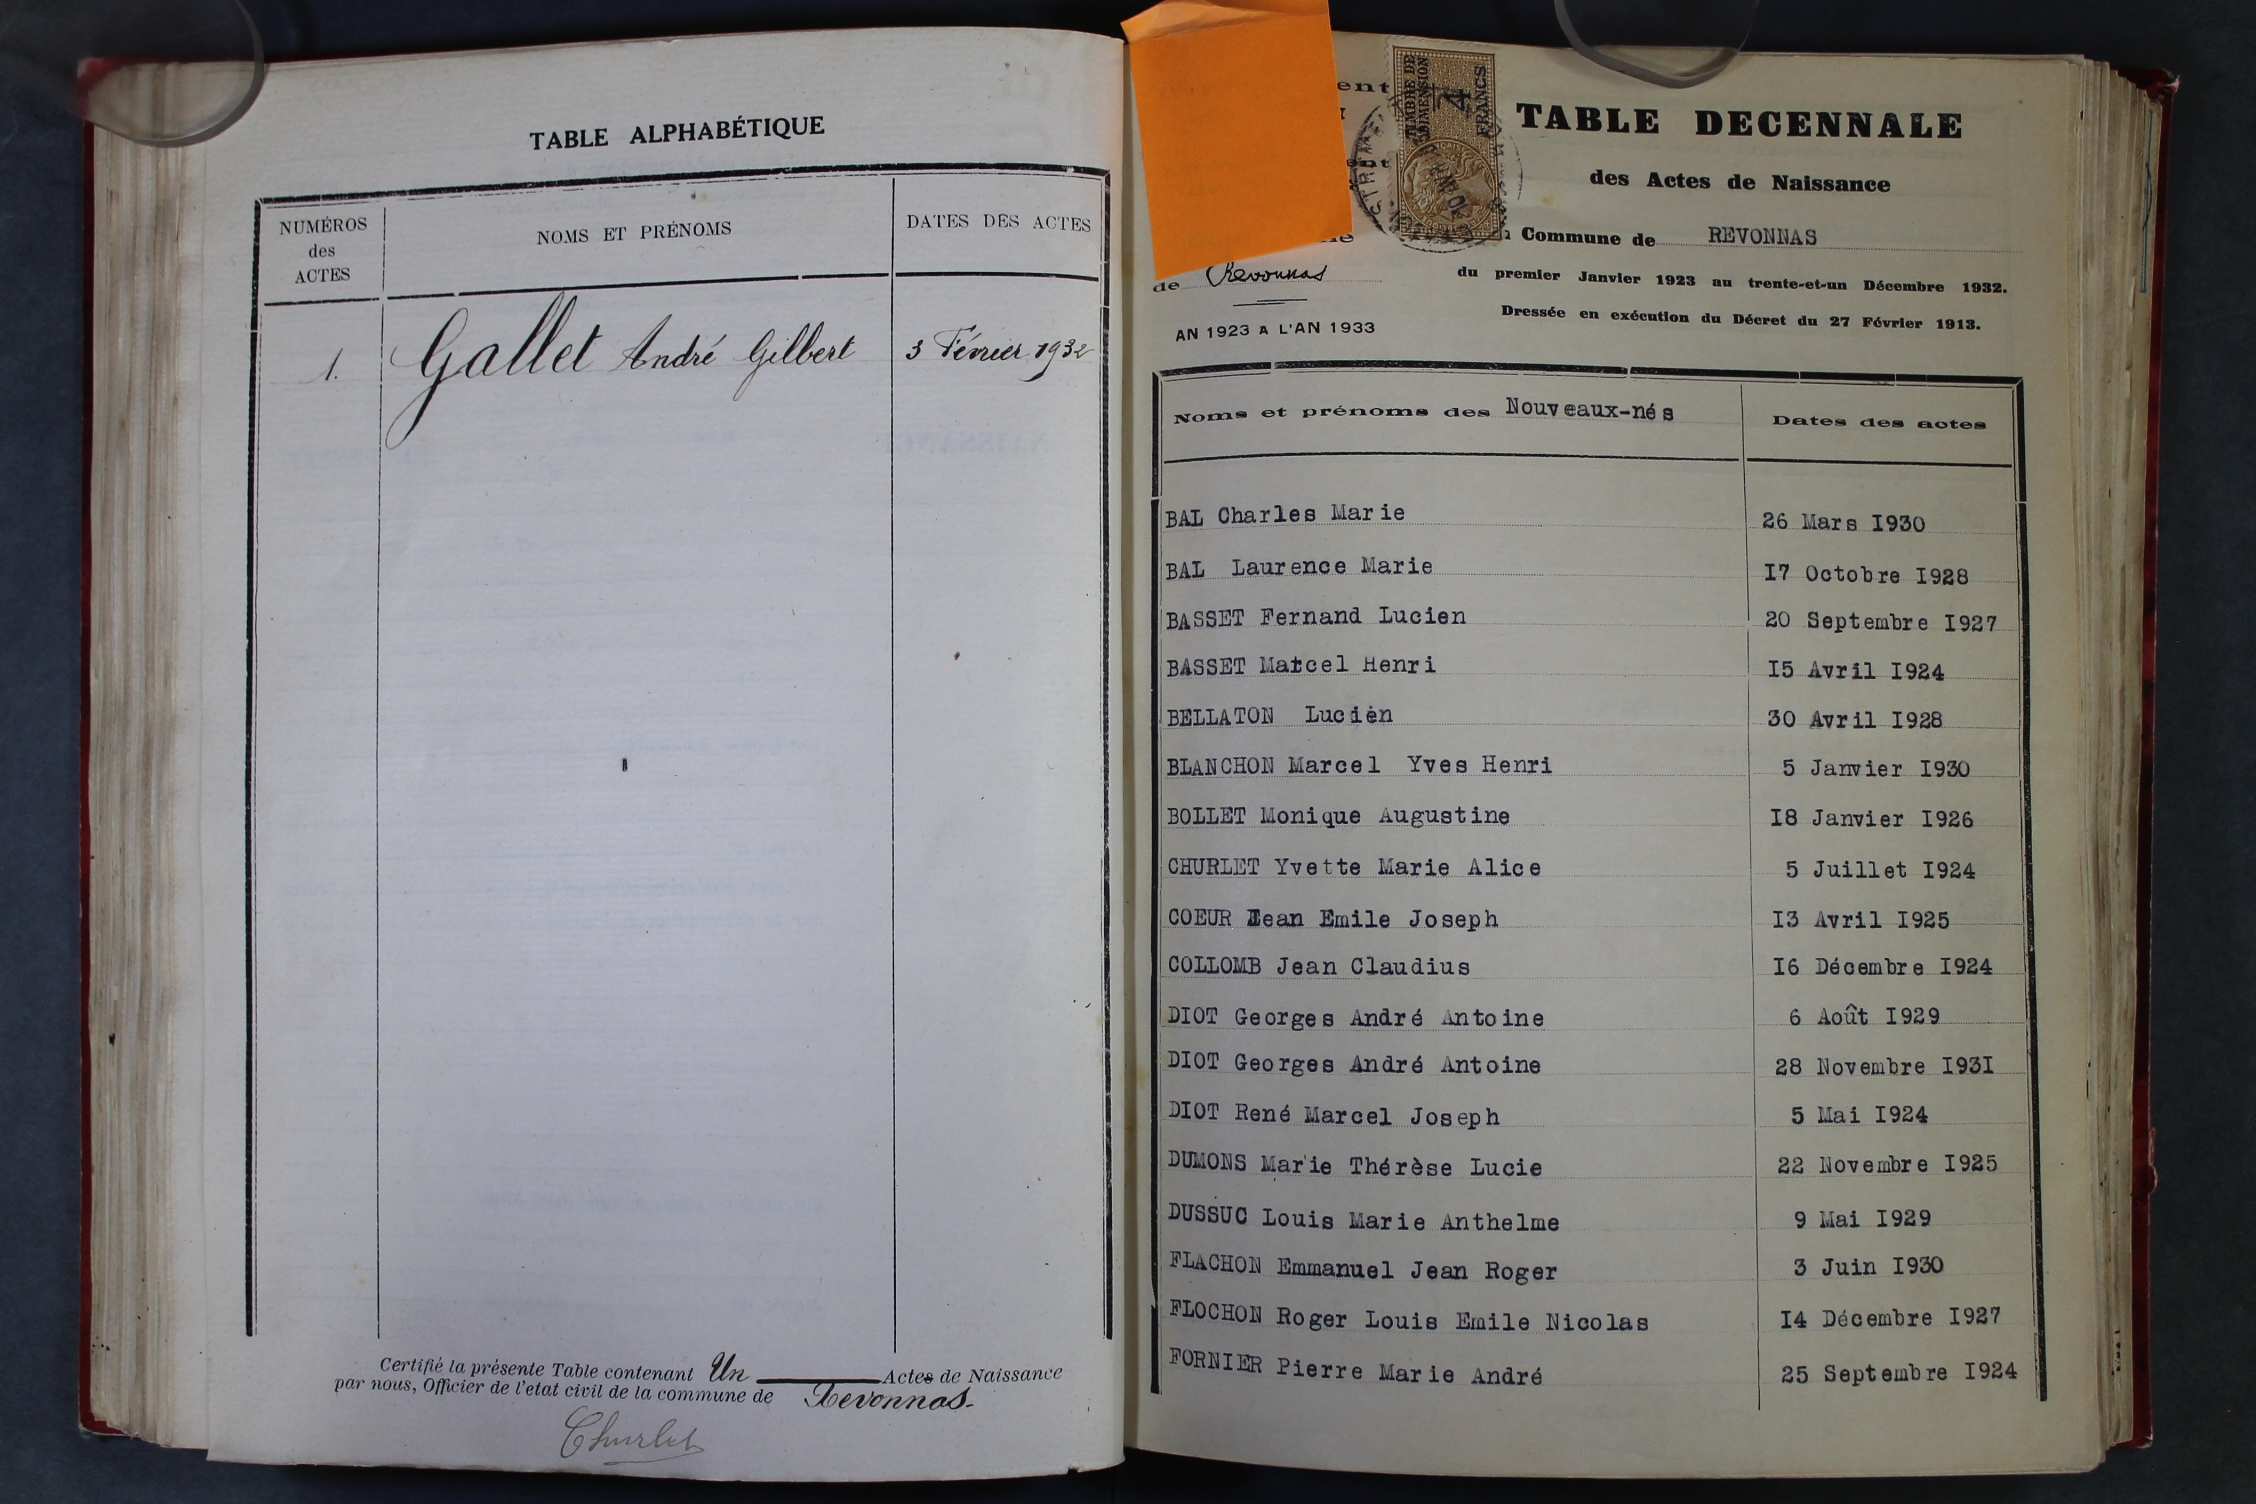 TABLE ALPHABÉTIQUE
NUMÉROS
des
ACTES
NOMS ET PRÉNOMS
DATES DES ACTES
1. Gallet André Gilbert 3 Février 1932
Certifié la présente Table contenant Un Actes de Naissance
par nous, Officier de l'etat civil de la commune de Revonnas
Churlet
TIMBRE DE
DIMENSION
4
FRANCS
TABLE DECENNALE
des Actes de Naissance
Commune de REVONNAS
de Revonnas
du premier Janvier 1923 au trente-et-un Décembre 1932.
Dressée en exécution du Décret du 27 Février 1913.
AN 1923 A L'AN 1933
Noms et prénoms des Nouveaux-nés
Dates des actes
BAL Charles Marie 26 Mars I930
BAL Laurence Marie I7 Octobre I928
BASSET Fernand Lucien 20 Septembre I927
BASSET Marcel Henri I5 Avril I924
BELLATON Lucien 30 Avril I928
BLANCHON Marcel Yves Henri 5 Janvier I930
BOLLET Monique Augustine I8 Janvier I926
CHURLET Yvette Marie Alice 5 Juillet I924
COEUR Jean Emile Joseph I3 Avril I925
COLLOMB Jean Claudius I6 Décembre I924
DIOT Georges André Antoine 6 Août I929
DIOT Georges André Antoine 28 Novembre I93I
DIOT René Marcel Joseph 5 Mai I924
DUMONS Marie Thérèse Lucie 22 Novembre I925
DUSSUC Louis Marie Anthelme 9 Mai I929
FLACHON Emmanuel Jean Roger 3 Juin I930
FLOCHON Roger Louis Emile Nicolas I4 Décembre I927
FORNIER Pierre Marie André 25 Septembre I924